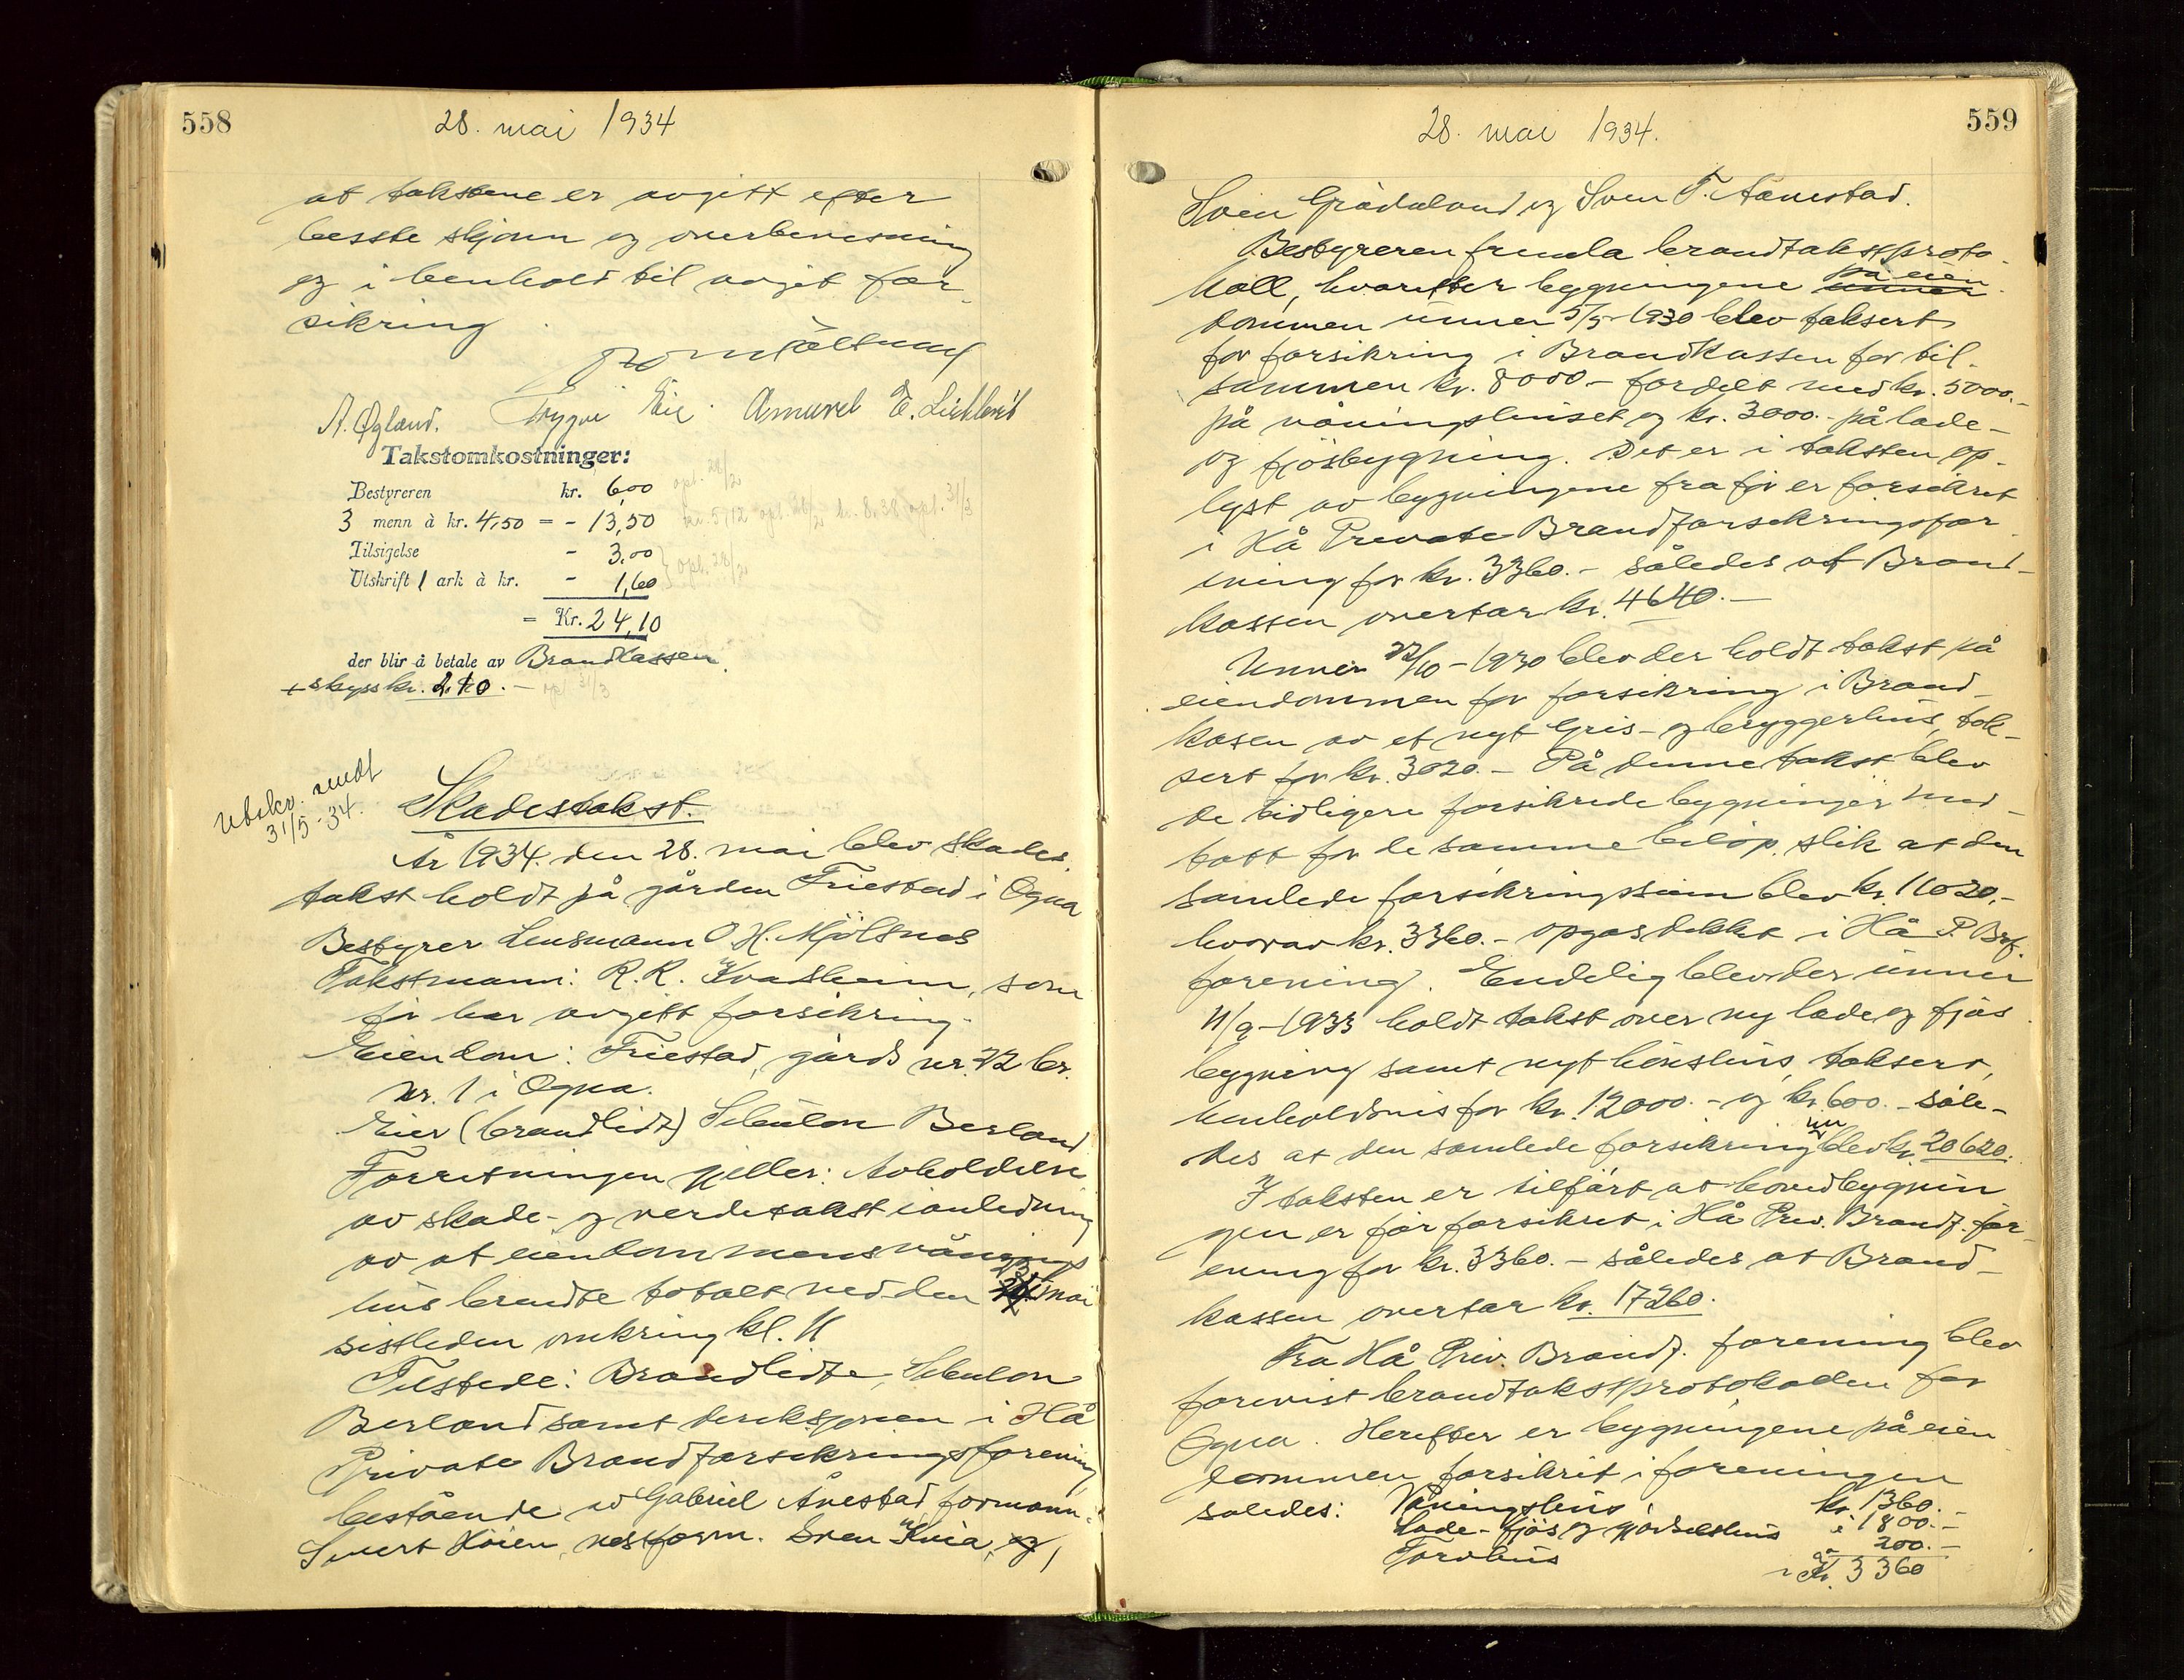 558
28. mai 1934
at takstene er avgitt efter
beste skjønn og overbevisning
og i henhold til avgit for-
sikring
A. Øgland. Trygve Eie. Asmurel E. Lieklevik
Takstomkostninger:
Bestyreren kr. 6,00 opl. 28/2
3 menn à kr. 4,50 = - 13,50 kr. 5,12 opl. 28/2 kr. 8,38 opl. 31/3
Tilsigelse - 3,00
Utskrift 1 ark à kr. - 1,60 opl. 28/2
= Kr. 24,10
der blir å betale av Brandkassen.
+ skyss kr. 2.10. - opl 31/3
Utskr. sendt
31/5-34.
Skadestakst.
År 1934 den 28. mai blev skades
takst holdt på gården Friestad i Ogna
Bestyrer Lensmann O. H. Mjölsnes
Takstmann: R. R. Kvalheim, som
før har avgitt forsikring.
Eiendom: Friestad, gårds nr. 72 br.
nr. 1 i Ogna.
Eier (brandlidt) Sebulon Berland
Forretningen gjeller: Avholdelse
av skade- og verdetakst i anledning
av at eiendommens vånings
hus brendte totalt ned den 23 mai
sistleden omkring kl. 11
Tilstede: Brandlidte, Sebulon
Berland samt direksjonen i Hå
Private Brandforsikringsforening
bestående av Gabriel Ånestad formann,
Sivert Höien, nestform. Sven Kvia, og,
559
28. mai 1934.
Sven Grödaland og Sven T. Aanestad.
Bestyreren fremla brandtakstproto-
koll, hvorefter bygningene på eien
dommen unner 5/5-1930 blev taksert
for forsikring i Brandkassen for til-
sammen kr. 8000.- fordelt med kr. 5000.-
på våningshuset og kr. 3000.- på lade-
og fjösbygning. Det er i taksten op-
lyst av bygningene fra før er forsikret
i Hå Private Brandforsikringsfor
ening for kr. 3360.- således at Brand-
kassen overtar kr. 4640.-
Unner 22/10-1930 blev der holdt takst på
eiendommen for forsikring i Brand-
kasen av et nyt Gris- og bryggerhus, tak-
sert for kr. 3020.- På denne takst blev
de tidligere forsikrede bygninger med-
tatt for de samme beløp, slik at den
samlede forsikringssum blev kr. 11020,-
hvorav kr. 3360.- opgas dekket i Hå P. Brf.
forening. Endelig blev der unner
11/9-1933 holdt takst over ny lade og fjös
bygning samt nyt hönshus, taksert,
henholdsvis for kr. 12000.- og kr. 600.- såle-
des at den samlede forsikring nu blev kr. 20620.
I taksten er tilført at hovedbygnin
gen er før forsikret i Hå Priv. Brandf. for-
ening for kr. 3360.- således at Brand-
kassen overtar kr. 17260.
Fra Hå Priv. Brandf. forening blev
forevist brandtakstprotokollen for
Ogna. Herefter er bygningene på eien
dommen forsikret i foreningen
således: Våningshus, kr. 1360.-
Lade- fjös og gjødselshus " 1800.-
Torvhus " 200.-
Kr. 3360